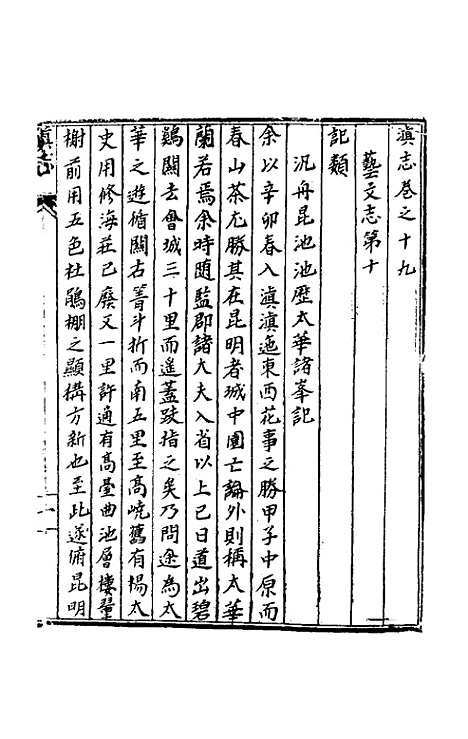 滇志卷之十九
藝文志第十
記類
汎舟昆池池歷太華諸峯記
余以辛卯春入滇滇迤東西花事之勝甲子中原而
春山茶尤勝其在昆明者城中園亡論外則稱太華
蘭若焉余時隨監郡諸大夫入省以上巳日道出碧
鷄關去會城三十里而遥蓋跂指之矣乃問途為太
華之遊循關古箐斗折而南五里至高嶢舊有楊太
史用修海莊已廢又一里許適有高臺曲池層樓翬
榭前用五色杜鵑棚之顯構方新也至此遂俯昆明
滇志